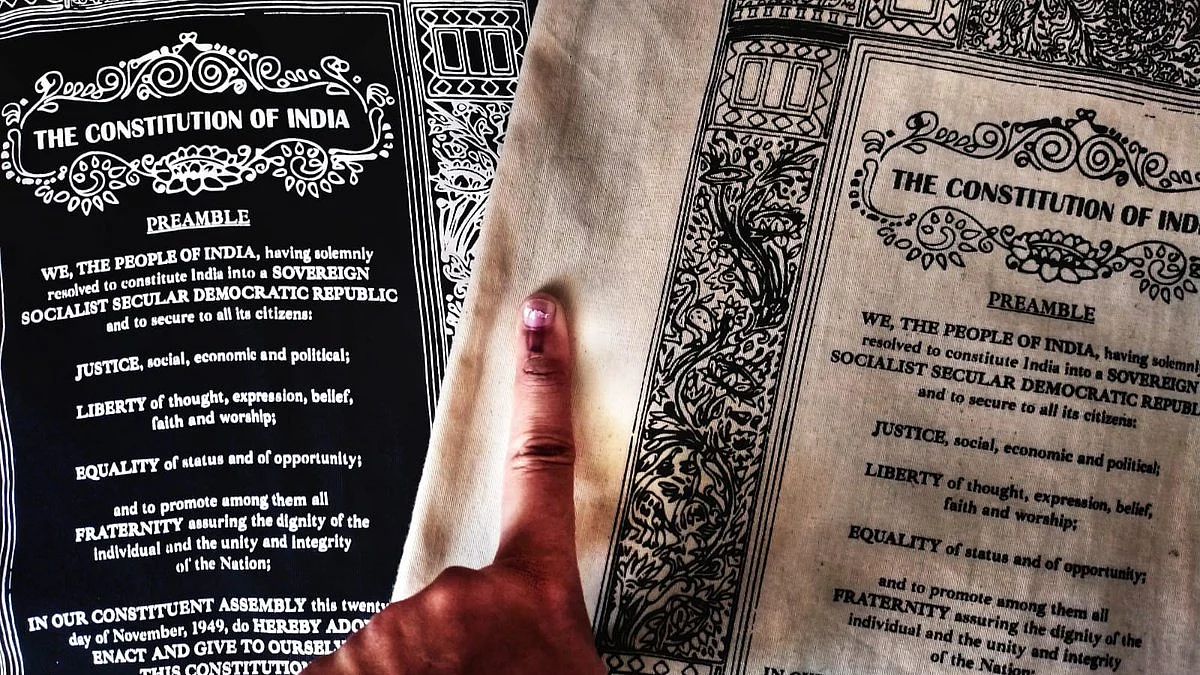 THE CONSTITUTION OF INDIA
PREAMBLE
WE, THE PEOPLE OF INDIA, having solemnly
resolved to constitute India into a SOVEREIGN
SOCIALIST SECULAR DEMOCRATIC REPUBLIC
and to secure to all its citizens:
JUSTICE, social, economic and political;
LIBERTY of thought, expression, belief,
faith and worship;
EQUALITY of status and of opportunity;
and to promote among them all
FRATERNITY assuring the dignity of the
individual and the unity and integrity
of the Nation;
IN OUR CONSTITUENT ASSEMBLY this twenty
day of November, 1949, do HEREBY ADO
ENACT AND GIVE TO OURSEL
THIS CONSTITUTION
THE CONSTITUTION OF IND
PREAMBLE
WE, THE PEOPLE OF INDIA, having solemnl
resolved to constitute India into a SOVEREIGN
SOCIALIST SECULAR DEMOCRATIC REPUB
and to secure to all its citizens:
JUSTICE, social, economic and political;
LIBERTY of thought, expression, belief,
faith and worship;
EQUALITY of status and of opportunity;
and to promote among them all
FRATERNITY assuring the dignity of the
individual and the unity and integrity
of the Nation;